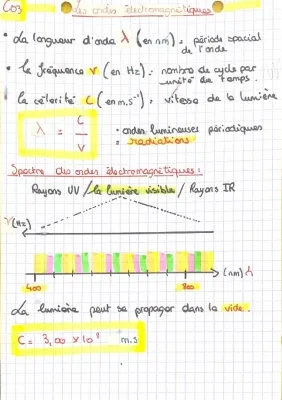 C03
Les ondes électromagnétiques
• La longueur d'onde λ (en nm) = période spacial
de l'onde
• la fréquence ν (en Hz) = nombre de cycle par
unité de temps.
• La célerité C (en m.s⁻¹) = vitesse de la lumière
λ = C / ν
• ondes lumineuses périodiques
= radiations
Spectre des ondes électromagnétiques :
Rayons UV / la lumière visible / Rayons IR
ν (Hz)
(nm) λ
400 800
La lumière peut se propager dans le vide.
C = 3,00 × 10⁸ m.s